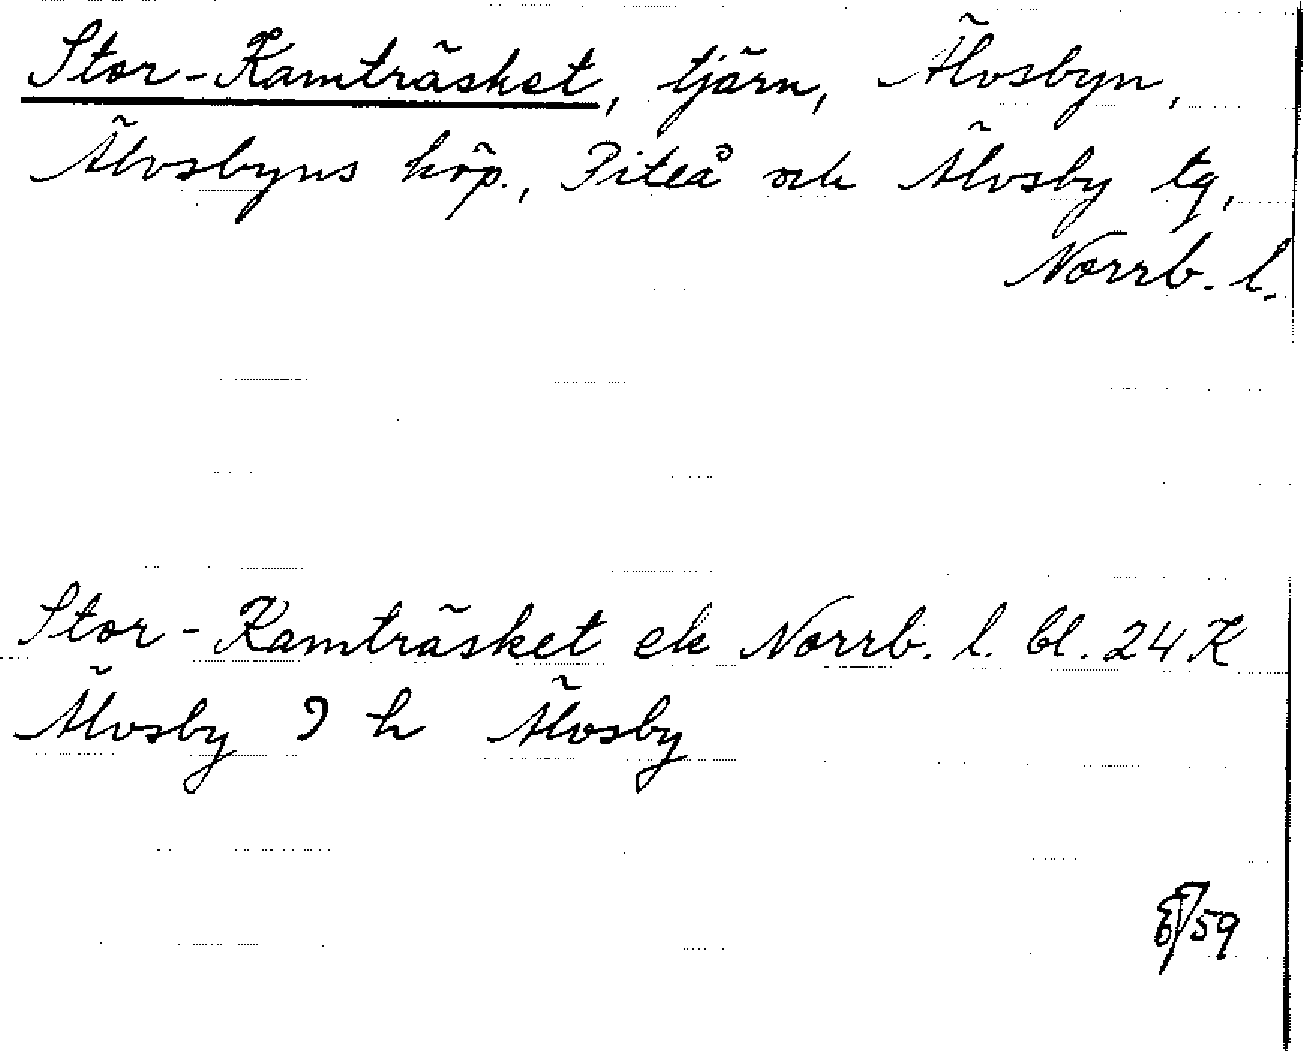 Stor-Kamträsket, tjärn, Älvsbyn,
Älvsbyns köp., Piteå och Älvsby tg,
Norrb. l.
Stor-Kamträsket ek Norrb. l. bl. 24 K
Älvsby 9 h Älvsby
59